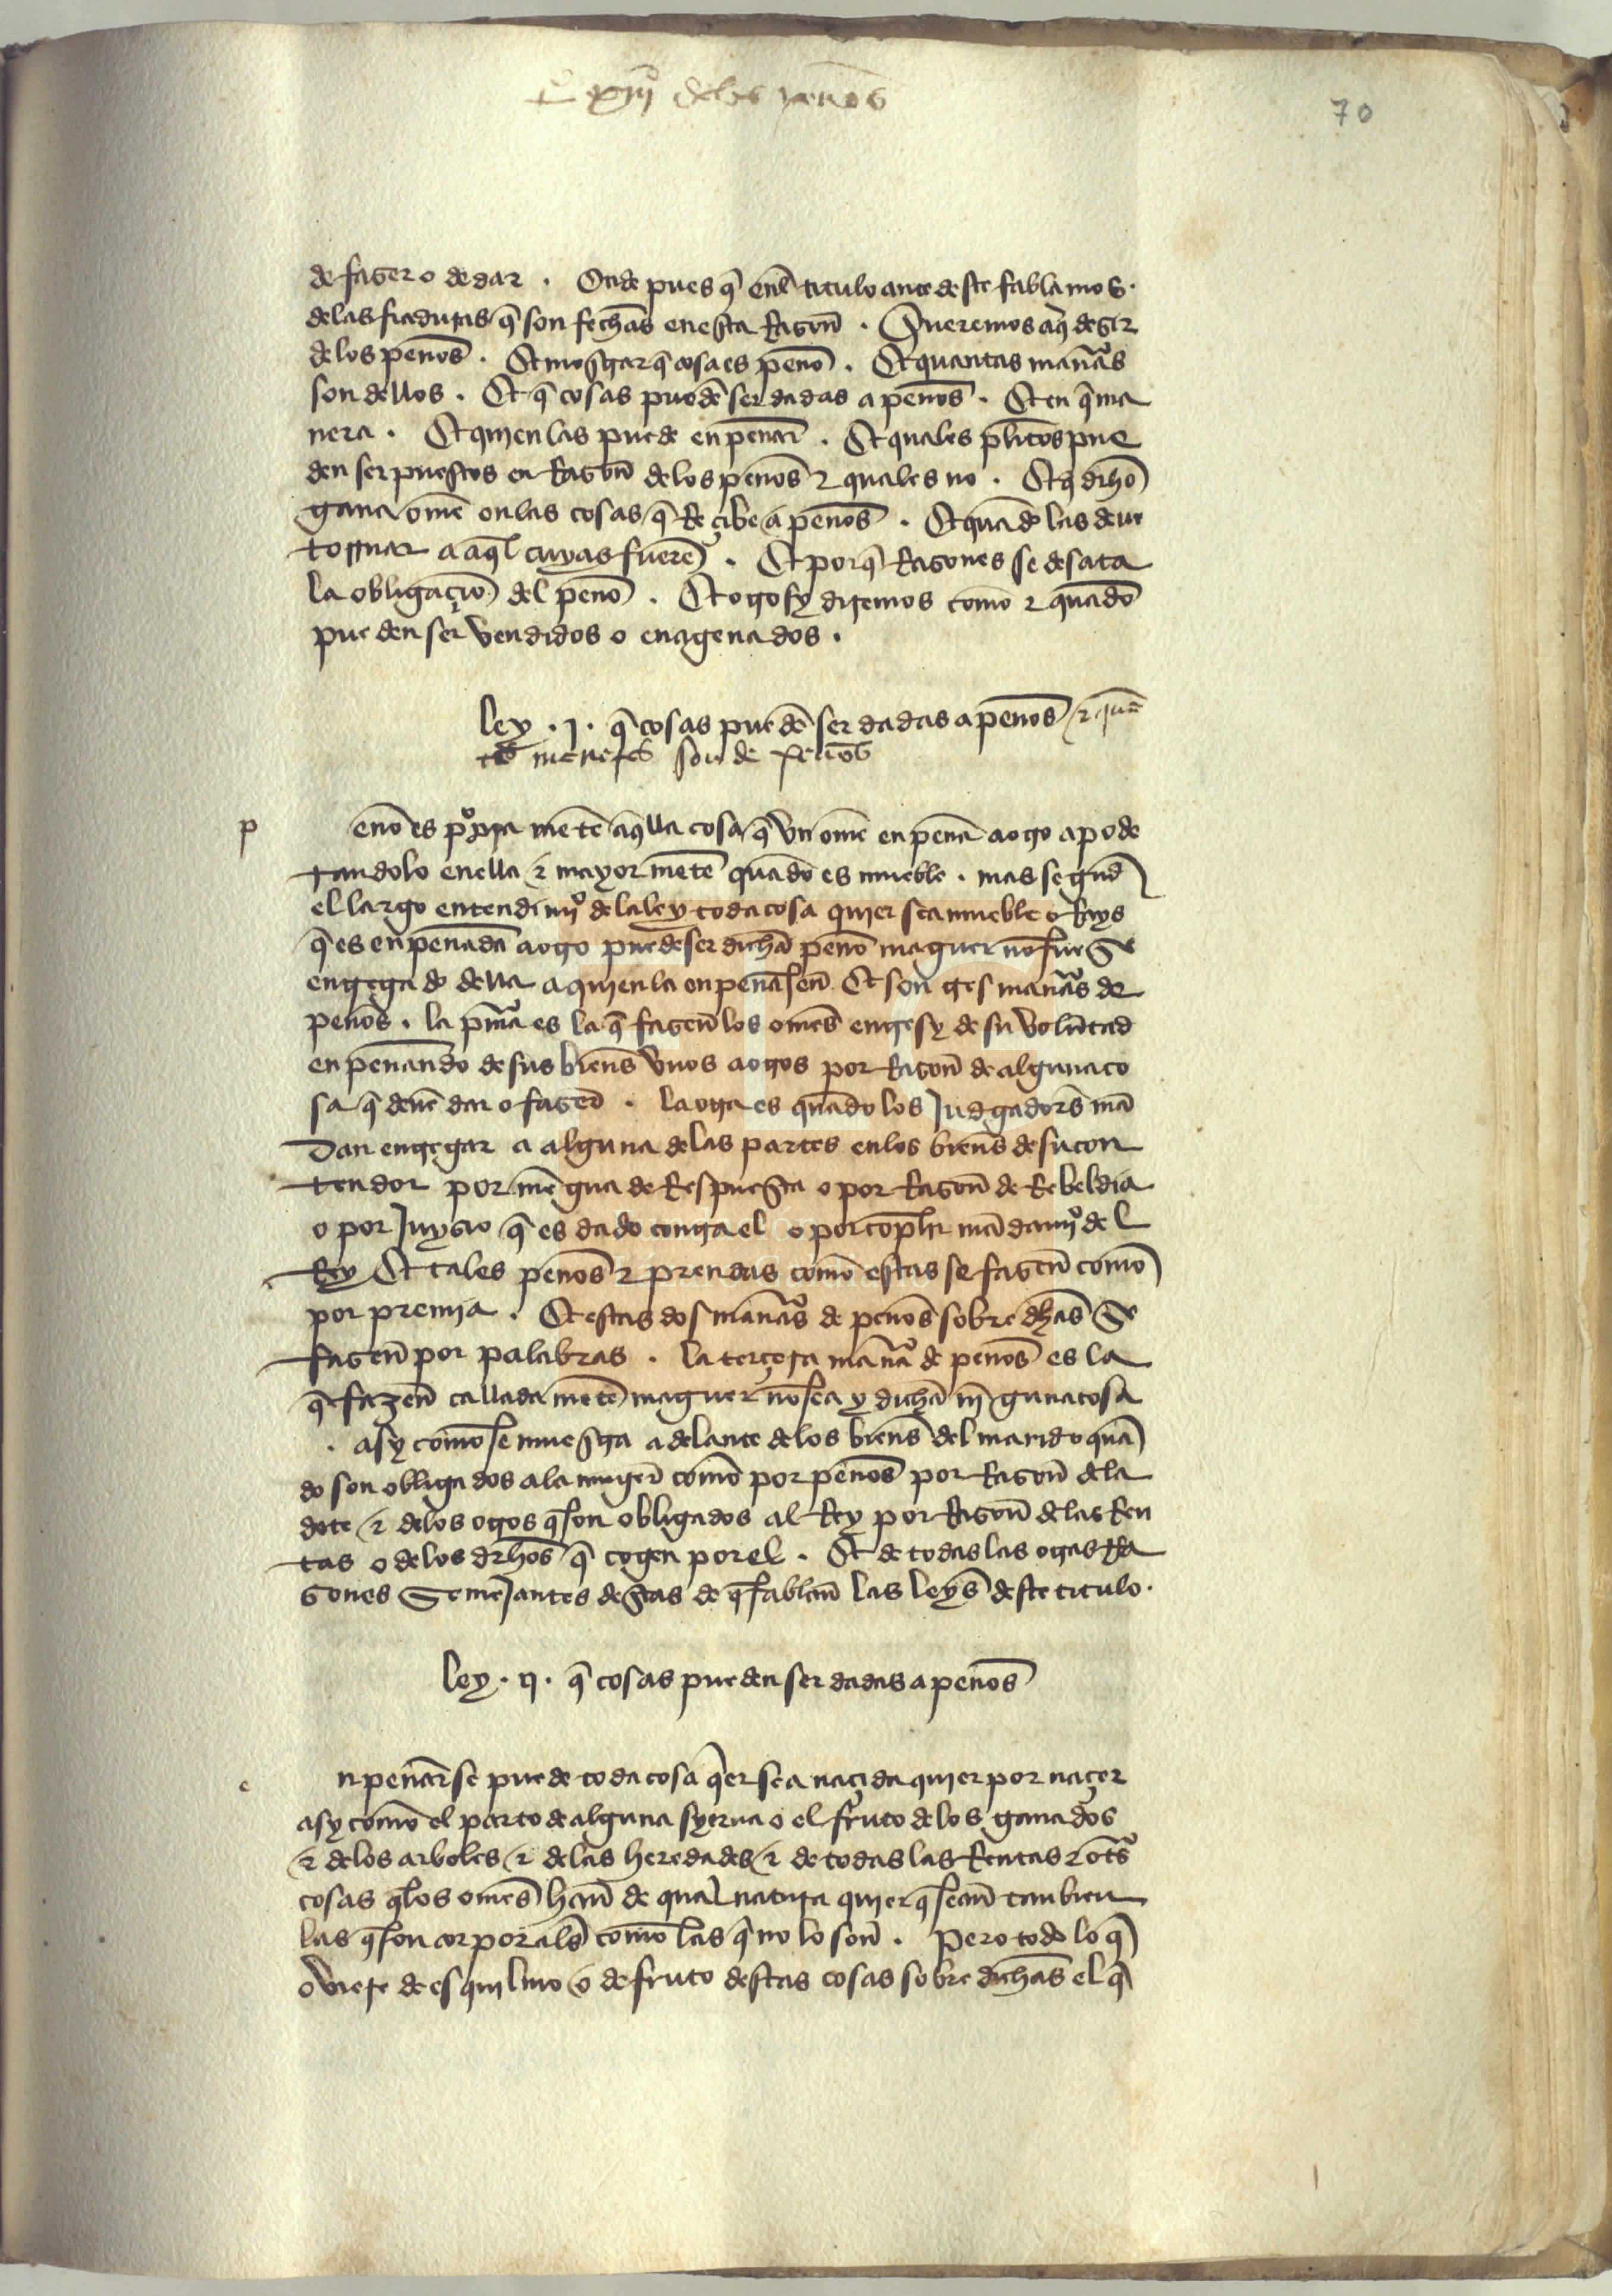 t xiij delos penos
70
de fazer o de dar . Onde pues q̃ enl titulo ante deste fablamos .
delas fiaduras q̃ son fechas en esta Razon̄ . Queremos aq̃ dezir
de los penos̄ . Et mostrar q̃ cosa es peno̅ . Et quantas man̄as
son dellos . Et q̃ cosas puedẽ ser dadas a penos̄ . Et en q̃ ma
nera . Et quien las puede enpenar̄ . Et quales pl̄itos pue
den ser puestos en Razon̄ delos penos̄ ⁊ quales no . Et q̃ dr̄ho
gana ome̅ en las cosas q̃ Reçibe a penos̄ . Et quãdo las deue
tornar a aq̃l cuyas fuerẽ . Et por q̃ Razones se desata
la obligaçiõ del peno̅ . Et otrosy diremos como̅ ⁊ quãdo
pueden ser vendidos o enagenados .
Ley . j . q̃ cosas puedẽ ser dadas a penos̄ ⁊ quã
tas maneras son de penos̄
p
eno̅ es p̊pia mẽte aq̃lla cosa q̃ vn ome̅ enpen̄a a otro apode
randolo en ella ⁊ mayor mẽte quãdo es mueble . mas segũd
el largo entendimj̊ de la ley toda cosa quier sea mueble o Rays
q̃ es enpen̄ada a otro puede ser dicha peno̅ maguer no̅ fuese
entregado della a quien la enpen̄asen̄ Et son̄ tres man̄as de
penos̄ . la pm̃a es la q̃ fazen̄ los omes̄ entresy de su volũtad
enpen̄ando de sus biens̄ vnos a otros por Razon̄ de alguna co
sa q̃ deuẽ dar o fazer̄ . la otra es quãdo los Judgadors̄ mã
dan entregar a alguna delas partes en los biens̄ de su con
tendor por mẽgua de Respuesta o por Razon̄ de Rebeldia
o por Juyzio q̃ es dado contra el o por conplir mãdamj̊ del
Rey Et tales penos̄ ⁊ prendas como̅ estas se fazen̄ como̅
por premia . Et estas dos man̄as de penos̄ sobre dhas̄ se
fazen̄ por palabras . la terçera man̄a de penos̄ es la
q̃ fazen̄ callada mẽte maguer no̅ sea y dicha nĩguna cosa
. asy como̅ se muestra adelante delos biens̄ del marido quã
do son obligados a la muger̄ como̅ por penos̄ por Razon̄ dela
dote ⁊ delos otros q̃ son obligados al Rey por Razon̄ delas Ren
tas o de los dr̄hos q̃ cogen por el . Et de todas las otras Ra
zones SemeJantes destas de q̃ fablan̄ las leys̄ deste titulo .
Ley . ij . q̃ cosas pueden ser dadas a penos̄
e
npen̄ar se puede toda cosa q̃er sea naçida quier por naçer
asy como̅ el parto de alguna syerua o el fruto delos ganados
⁊ delos arboles ⁊ delas heredades ⁊ de todas las Rentas ⁊ ot̃s
cosas q̃ los omes̄ han̄ de qual natura quier q̃ sean̄ tanbien
las q̃ son corporals̄ como̅ las q̃ no lo son̄ . Pero todo lo q̃
ouiere de esquilmo o de fruto destas cosas sobre dichas el q̃